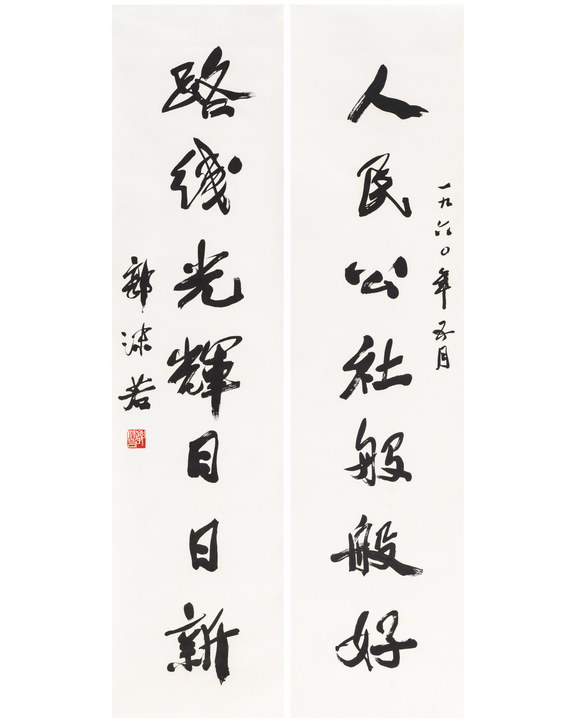 人民公社般般好
一九六〇年五月
路线光輝日日新
郭沫若